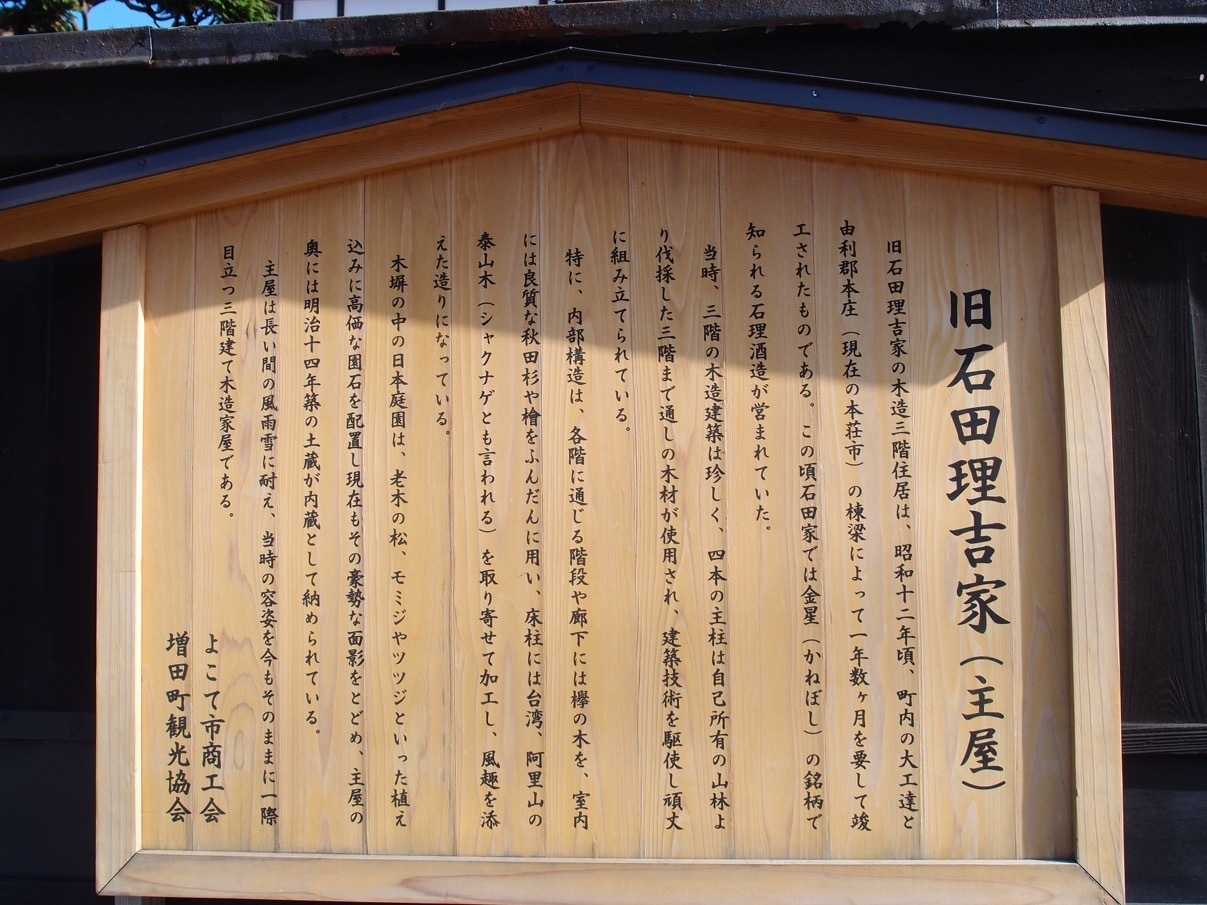 旧石田理吉家（主屋）
旧石田理吉家の木造三階住居は、昭和十二年頃、町内の大工達と
由利郡本庄（現在の本荘市）の棟梁によって一年数ヶ月を要して竣
工されたものである。この頃石田家では金星（かねぼし）の銘柄で
知られる石理酒造が営まれていた。
当時、三階の木造建築は珍しく、四本の主柱は自己所有の山林よ
り伐採した三階まで通しの木材が使用され、建築技術を駆使し頑丈
に組み立てられている。
特に、内部構造は、各階に通じる階段や廊下には欅の木を、室内
には良質な秋田杉や檜をふんだんに用い、床柱には台湾、阿里山の
泰山木（シャクナゲとも言われる）を取り寄せて加工し、風趣を添
えた造りになっている。
木塀の中の日本庭園は、老木の松、モミジやツツジといった植え
込みに高価な園石を配置し現在もその豪勢な面影をとどめ、主屋の
奥には明治十四年築の土蔵が内蔵として納められている。
主屋は長い間の風雨雪に耐え、当時の容姿を今もそのままに一際
目立つ三階建て木造家屋である。
よこて市商工会
増田町観光協会